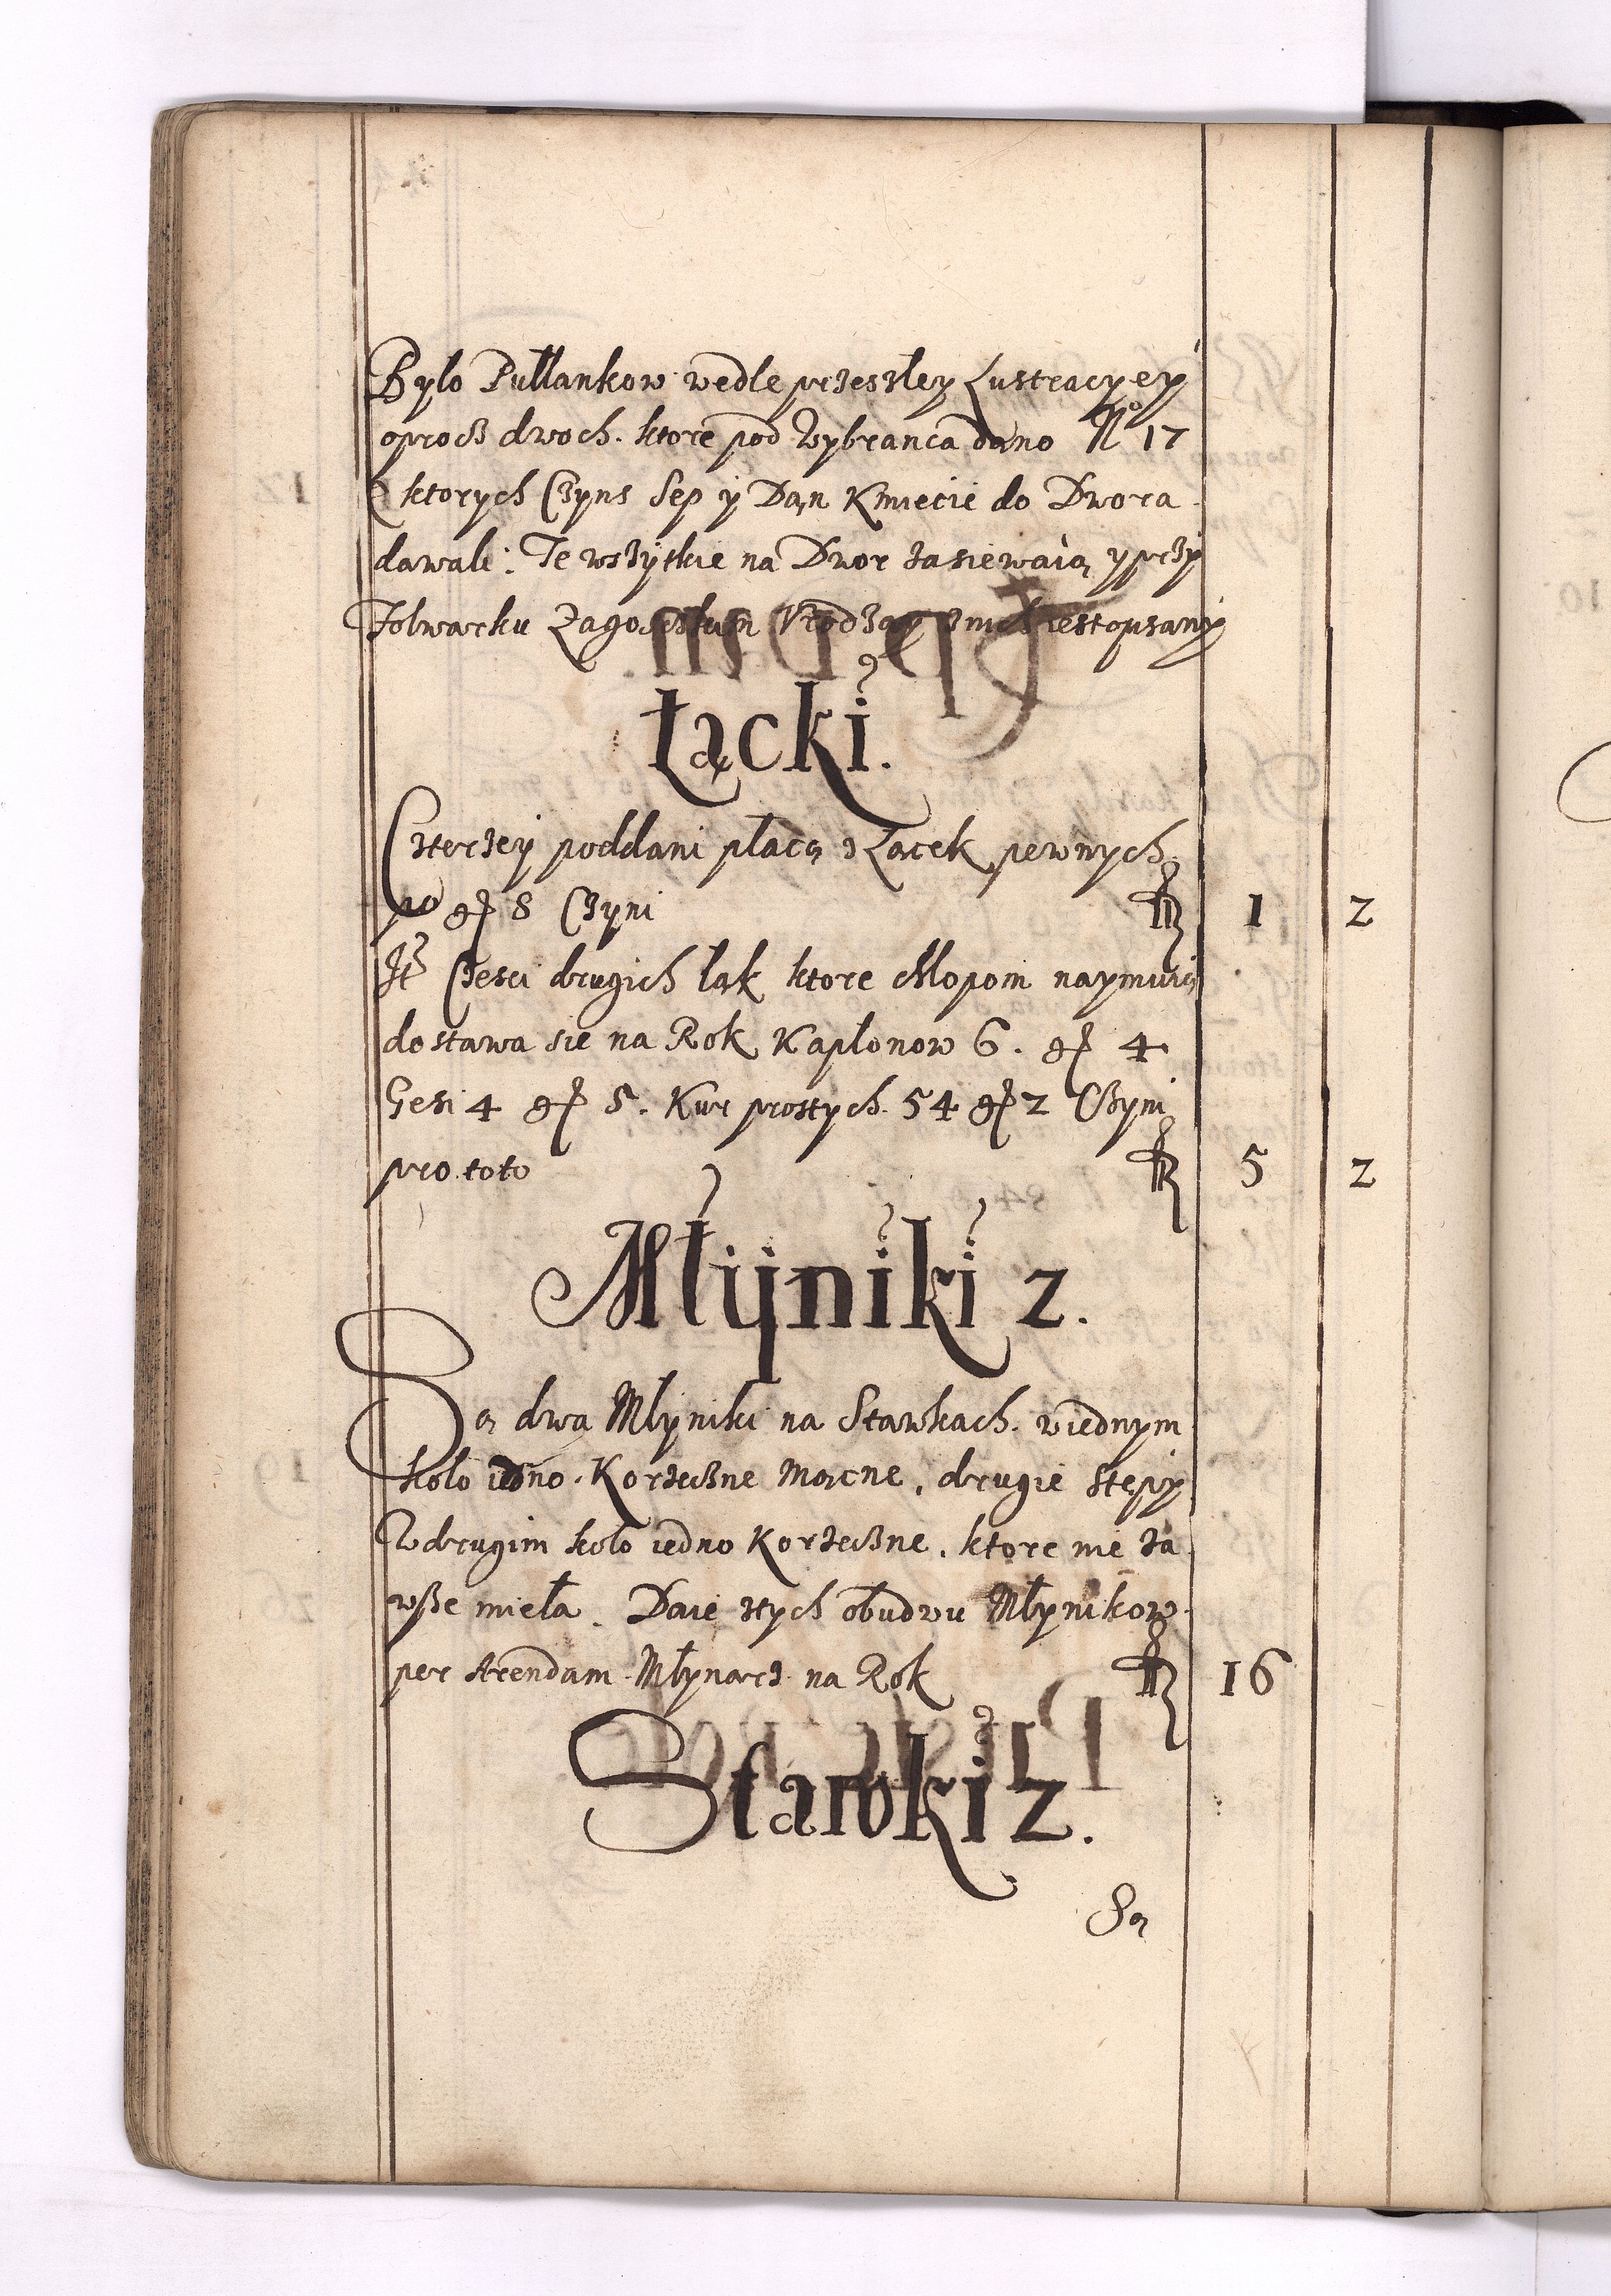 Bylo Pułlankow wedle przeszłey Lustracyey
oprocz dwoch ktore pod Wybranca dano No 17
Z ktorych Czyns Sep y Dan Kmiecie do Dwora
dawali. Te wszytkie na Dwor zasiewaią y przy
Folwarku Zagosckim Vrodzay znich iest opisany
Łącki.
Czterzey poddani płacą z Łącek pewnych
po g 8 Czyni f 1 2
It Czesci drugich łak ktore chłopom naymuią
dostawa sie na Rok Kapłonow 6. g 4
Gesi 4 g 5. Kur prostych 54 g 2 Czyni
pro toto f 5 2
Młyniki 2.
Są dwa Młyniki na Stawkach. w iednym
koło iedno Korzeczne mocne, drugie stępy
W drugim koło iedno Korzeczne, ktore nie za
wsze miela. Daie z tych obudwu Młynikow
per Arendam Młynarz na Rok f 16
Stawki 2.
Są